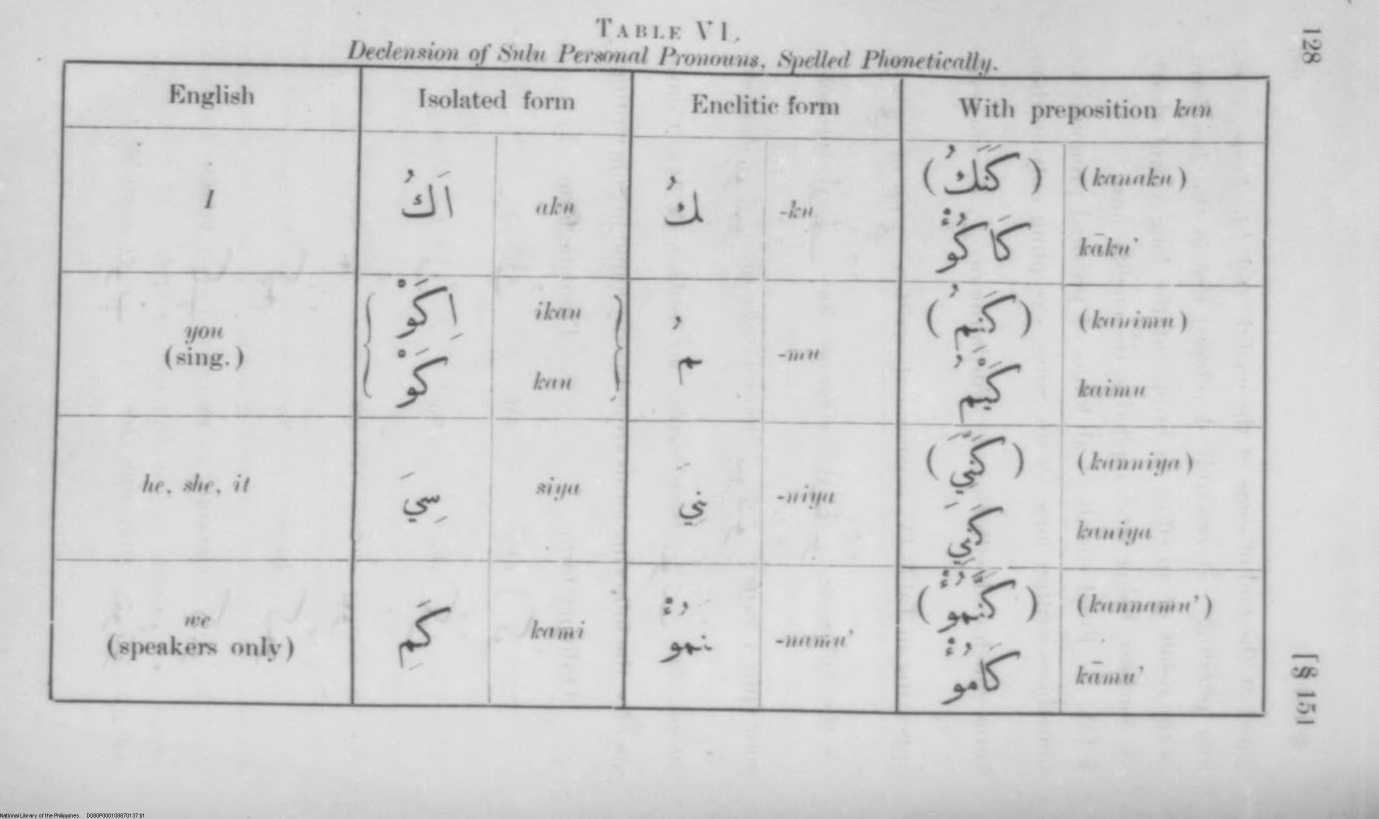 128
TABLE VI.
Declension of Sulu Personal Pronouns, Spelled Phonetically.
English Isolated form Enclitic form With preposition kan
I اَكُ aku كُ -ku (كَنَكُ) (kanaku)
كَاكُوْء kāku’
you (sing.) اِكَوْ ikau مُ -mu (كَنِمُ) (kanimu)
كَوْ kau كَيْمُ kaimu
he, she, it سِيَ siya نِيَ -niya (كَنِّيَ) (kanniya)
كَنِيَ kaniya
we (speakers only) كَمِ kami نَمُوْء -namu’ (كَنَّمُوْء) (kannamu’)
كَامُوْء kāmu’
[§ 151
National Library of the Philippines